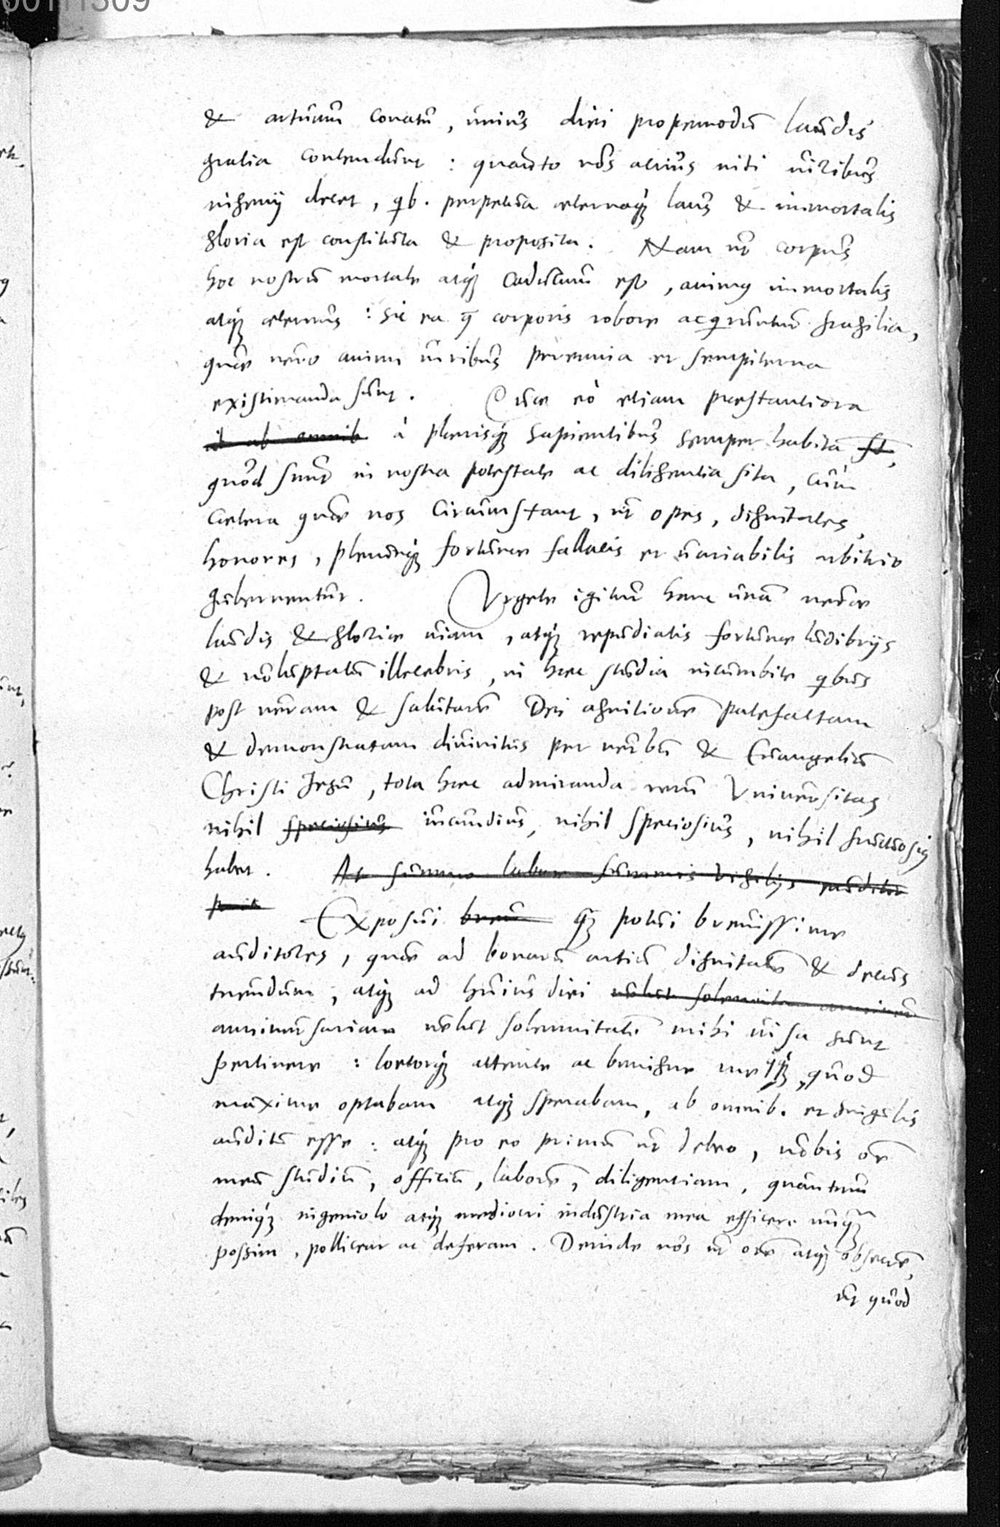 & artuum conatu, unius diei propemodū laudis
gratia contendunt : quanto nos acrius niti uiribus
ingenij decet, qb. perpetua aeternaq; laus & immortalis
gloria est constituta & proposita. Nam ut corpus
hoc nostrū mortale atq; caducum est, animus immortalis
atq; aeternus : sic ea q corporis robore acquiruntur fragilia,
quae uero animi uiribus perennia et sempiterna
existimanda sunt. Quae eò etiam praestantiora
id ab omnib à plerisq; sapientibus semper habita st,
quòd sunt in nostra potestate ac diligentia sita, cùm
caetera quae nos circumstant, ut opes, dignitates,
honores, plerunq; fortunae fallacis et uariabilis arbitrio
gubernentur. Vrgete igitur hanc unā uerae
laudis & gloriae uiam, atq; repudiatis fortunae ludibrijs
& uoluptatū illecebris, in haec studia incumbite qbus
post ueram & salutarē Dei agnitionē patefactam
& demonstratam diuinitus per uerbū & Euangeliū
Christi Jesu, tota haec admiranda rerū Vniuersitas
nihil speciosius iucundius, nihil speciosius, nihil fructuosius
habet. At summo labore summis vigilijs
Exposui breui q; potui breuissime
auditores, quae ad bonarū artiū dignitatē & decus
tuendum, atq; ad huius diei uelut solennitatē
anniuersariam uelut solennitatē mihi uisa sunt
pertinere : laetorq; attente ac benigne me, quod
maxime optabam atq; sperabam, ab omnib. et singulis
auditū esse : atq; pro eo primū ut debeo, uobis oē
meū studiū, officiū, laborē, diligentiam, quantum
deniq; ingeniolo atq; mediocri industria mea efficere unq;
possim, polliceor ac deferam. Deinde uos ut orē atq; obsecrē,
ut quod